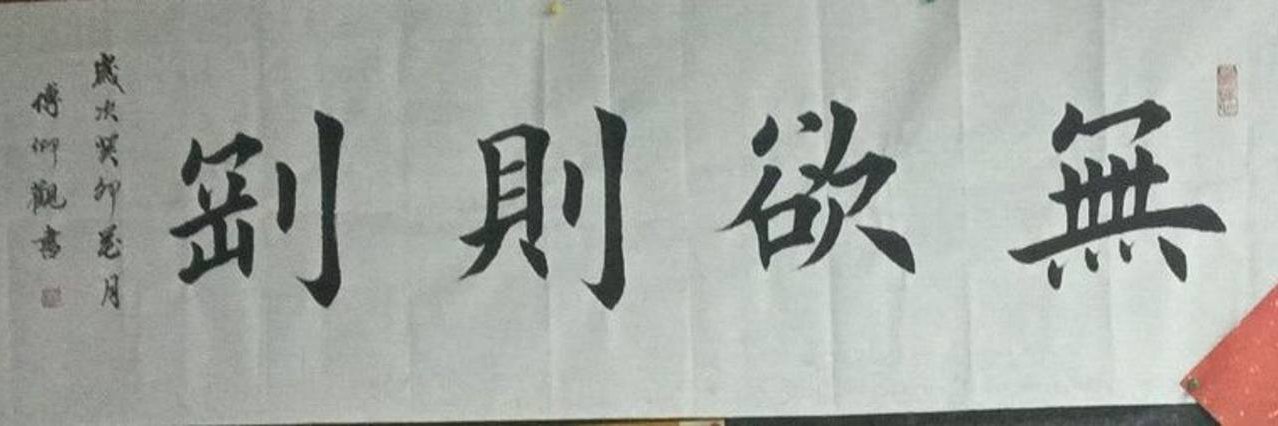 無欲則剛
歲次癸卯花月
傅仰觀書